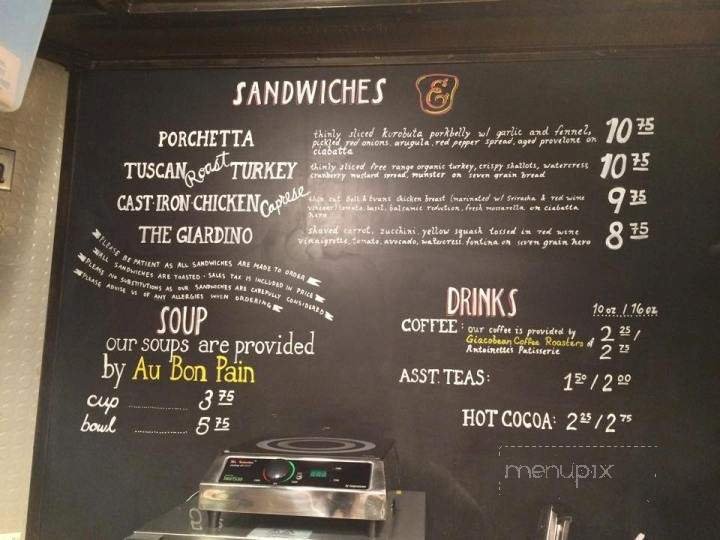 SANDWICHES &
PORCHETTA
thinly sliced kurobuta porkbelly w/ garlic and fennel,
pickled red onions, arugula, red pepper spread, aged provelone on
ciabatta
10 75
TUSCAN Roast TURKEY
thinly sliced free range organic turkey, crispy shallots, watercress
cranberry mustard spread, munster on seven grain bread
10 75
CAST-IRON-CHICKEN Caprese
thin cut Bell & Evans chicken breast (marinated w/ Sriracha & red wine
vinegar) tomato, basil, balsamic redution, fresh mozzarella on ciabatta
hero
9 75
THE GIARDINO
shaved carrot, zucchini, yellow squash tossed in red wine
vinaigrette, tomato, avocado, watercress, fontina on seven grain hero
8 75
PLEASE BE PATIENT AS ALL SANDWICHES ARE MADE TO ORDER
ALL SANDWICHES ARE TOASTED - SALES TAX IS INCLUDED IN PRICE
PLEASE NO SUBSTITUTIONS AS OUR SANDWICHES ARE CAREFULLY CONSIDERED
PLEASE ADVISE US OF ANY ALLERGIES WHEN ORDERING
SOUP
our soups are provided
by Au Bon Pain
cup ............ 3 75
bowl ............ 5 75
DRINKS
10 oz / 16 oz
COFFEE: our coffee is provided by
Giacobean Coffee Roasters &
Antoinettes Patisserie
2 25 /
2 75
ASST. TEAS: 1 50 / 2 00
HOT COCOA: 2 25 / 2 75
menupix